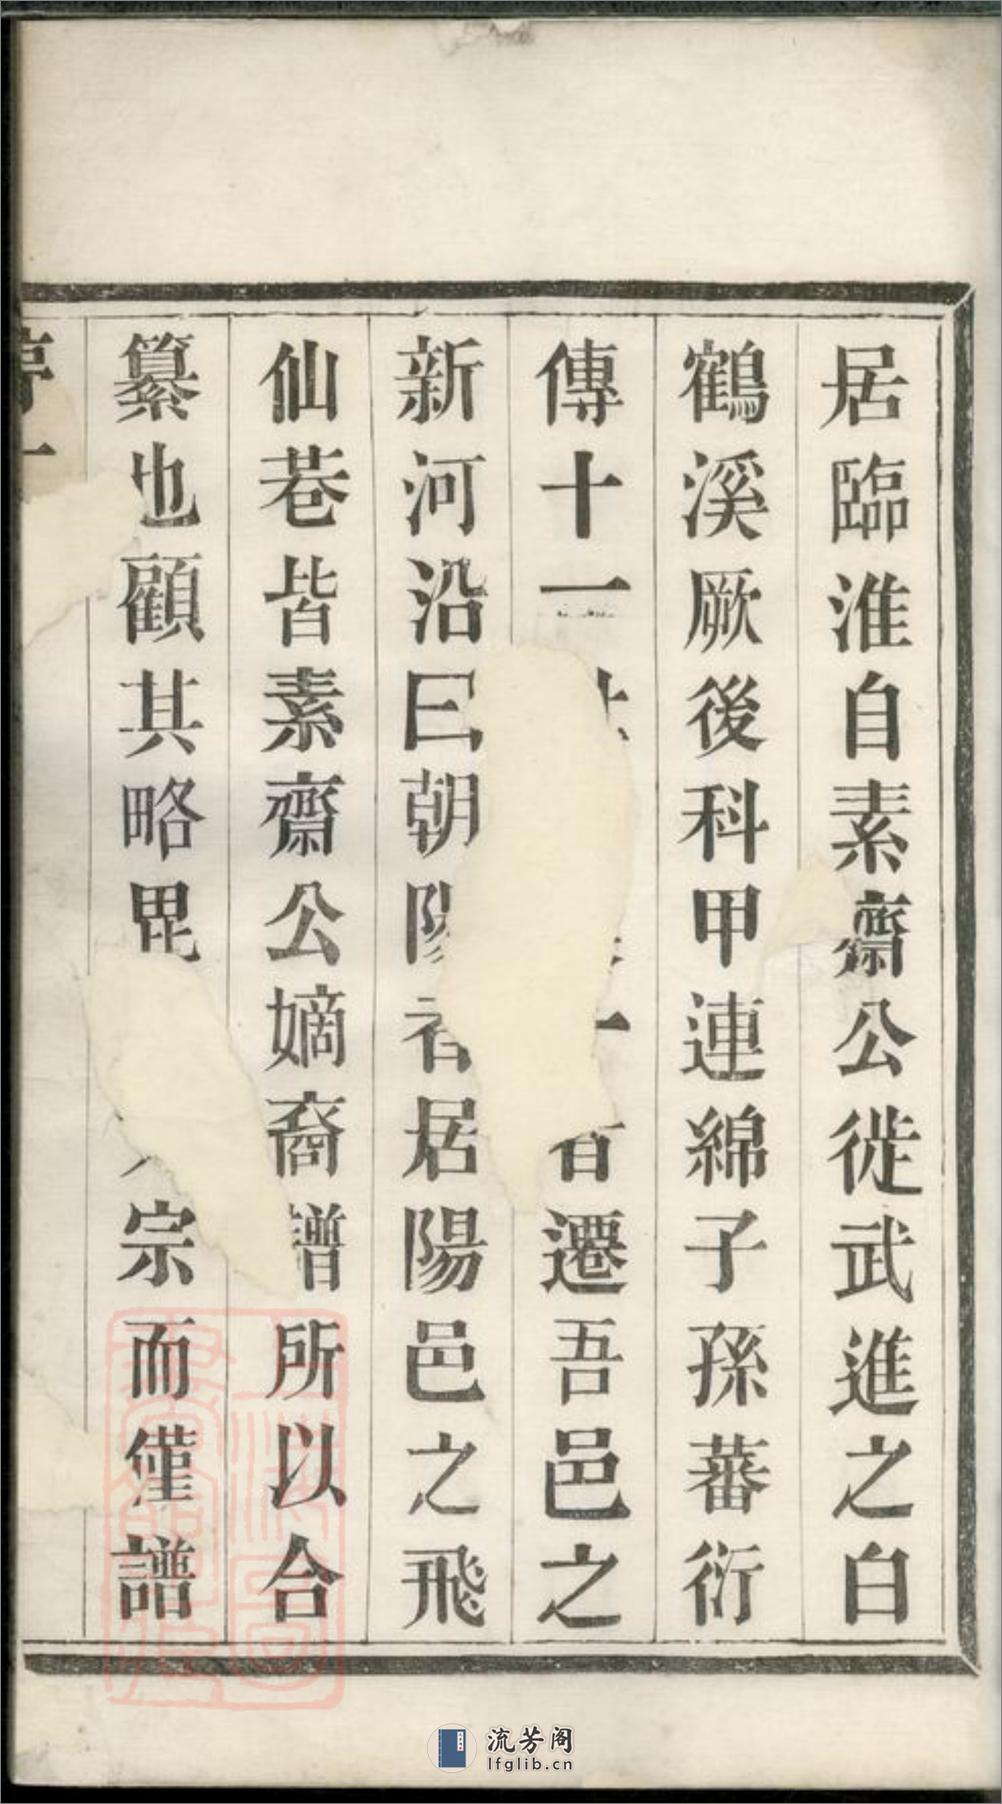 居臨淮自素齋公徙武進之白
鶴溪厥後科甲連綿子孫蕃衍
傳十一一者遷吾邑之
新河沿曰朝陽者居陽邑之飛
仙巷皆素齋公嫡裔譜所以合
纂也顧其略毘宗而僅譜
流芳阁
lfglib.cn